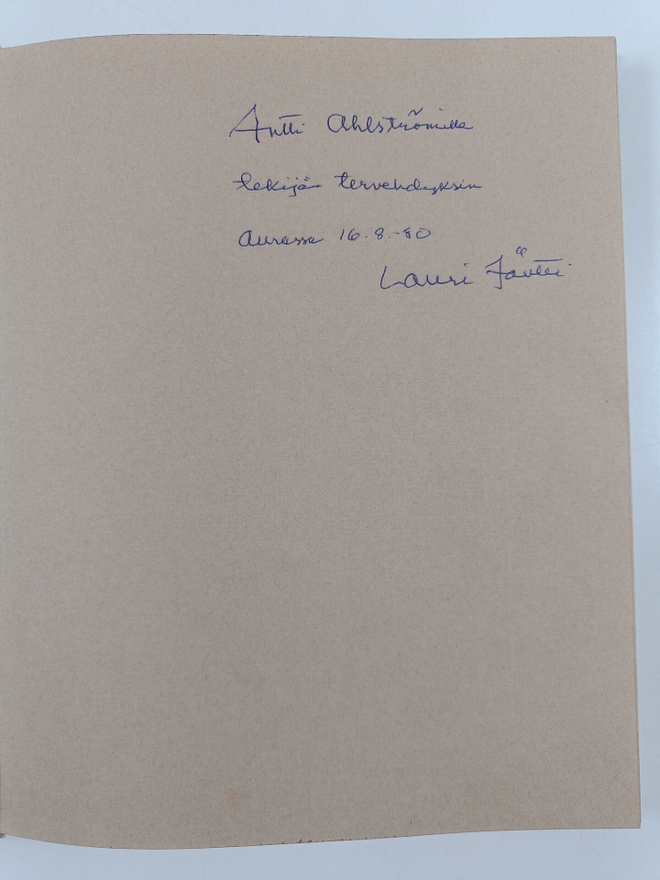 Antti Ahlströmille
tekijän tervehdyksin
Aurassa 16.8.-80
Lauri Jäntti